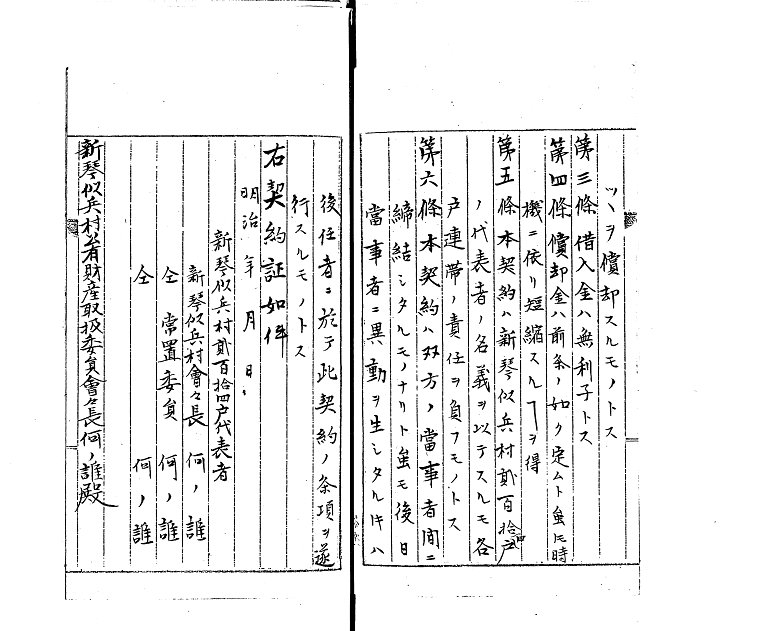 ツヽヲ償却スルモノトス
第三條借入金ハ無利子トス
第四條償却金ハ前条ノ如ク定ムト虽モ時
機ニ依リ短縮スルヿヲ得
第五條本契約ハ新琴似兵村貳百拾四戸
ノ代表者ノ名義ヲ以テスルモ各
戸連帯ノ責任ヲ負フモノトス
第六條本契約ハ双方ノ當事者間ニ
締結シタルモノナリト虽モ後日
當事者ニ異動ヲ生シタル片ハ
後任者ニ於テ此契約ノ条項ヲ遂
行スルモノトス
右契約証如件
明治 年 月 日
新琴似兵村貳百拾四戸代表者
新琴似兵村會々長 何ノ誰
仝 常置委員 何ノ誰
仝 何ノ誰
新琴似兵村公有財産取扱委員會々長何ノ誰殿